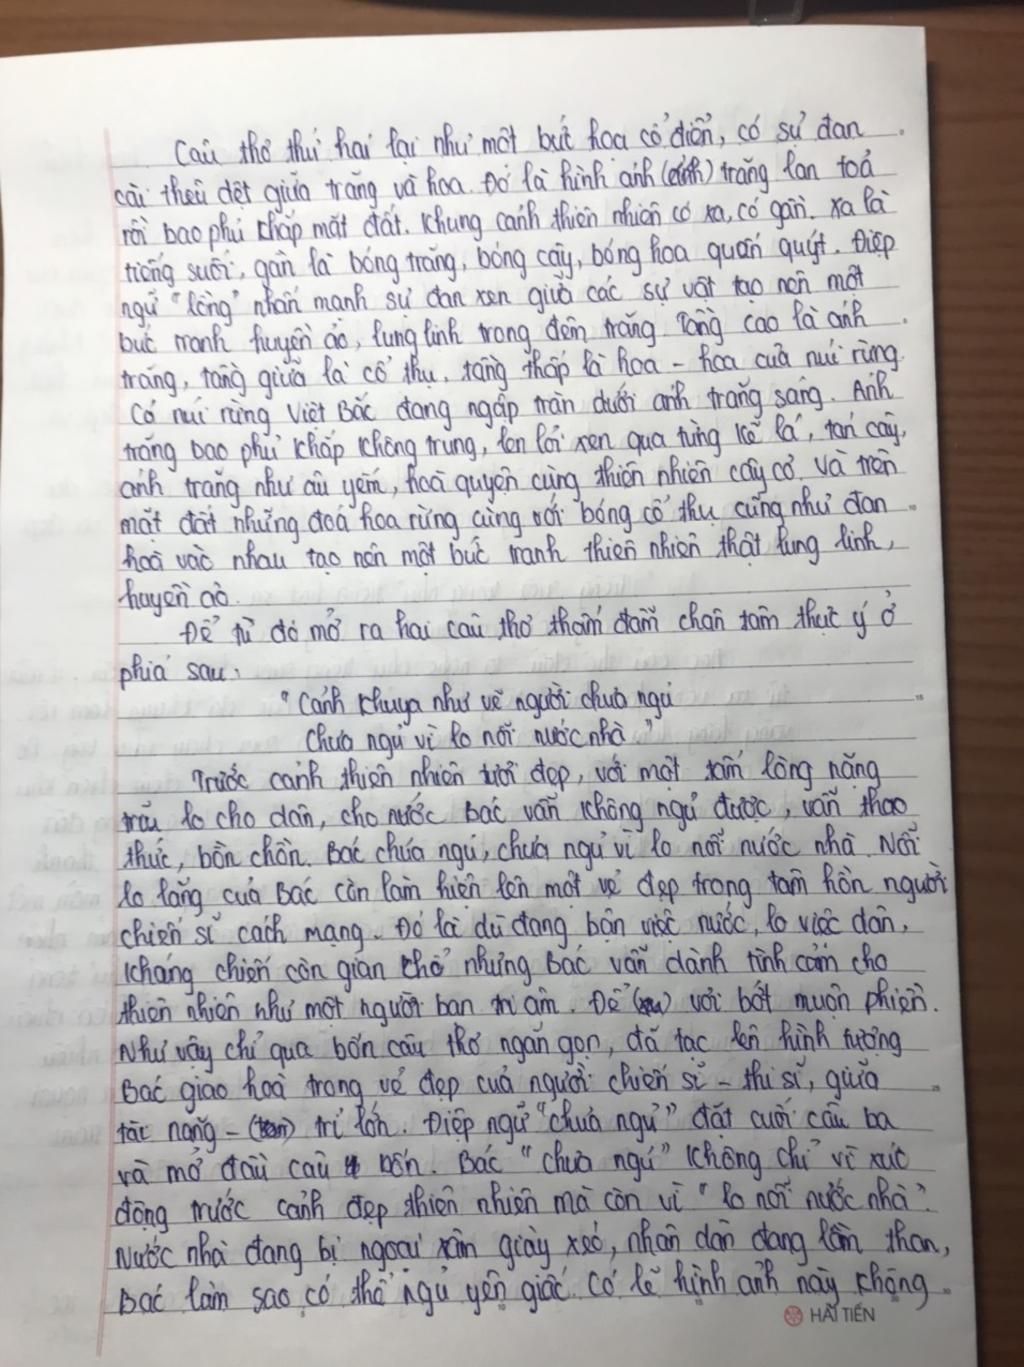 Câu thơ thứ hai lại như một bức hoạ cổ điển, có sự đan
cài thêu dệt giữa trăng và hoa. Đó là hình ảnh (ảnh) trăng lan toả
rồi bao phủ khắp mặt đất. Khung cảnh thiên nhiên có xa, có gần. Xa là
tiếng suối, gần là bóng trăng, bóng cây, bóng hoa quấn quýt. Điệp
ngữ "lồng" nhấn mạnh sự đan xen giữa các sự vật tạo nên một
bức tranh huyền ảo, lung linh trong đêm trăng. Tầng cao là ánh
trăng, tầng giữa là cổ thụ, tầng thấp là hoa - hoa của núi rừng.
Cả núi rừng Việt Bắc đang ngập tràn dưới ánh trăng sáng. Ánh
trăng bao phủ khắp không trung, len lỏi xen qua từng kẽ lá, tán cây,
ánh trăng như âu yếm, hoà quyện cùng thiên nhiên cây cỏ. Và trên
mặt đất những đoá hoa rừng cùng với bóng cổ thụ cũng như đan
hoà vào nhau tạo nên một bức tranh thiên nhiên thật lung linh,
huyền ảo.
Để từ đó mở ra hai câu thơ thấm đẫm chân tâm thực ý ở
phía sau:
"Cảnh khuya như vẽ người chưa ngủ
Chưa ngủ vì lo nỗi nước nhà"
Trước cảnh thiên nhiên tươi đẹp, với một tấm lòng nặng
trĩu lo cho dân, cho nước Bác vẫn không ngủ được, vẫn thao
thức, bồn chồn. Bác chưa ngủ, chưa ngủ vì lo nỗi nước nhà. Nỗi
lo lắng của Bác còn làm hiện lên một vẻ đẹp trong tâm hồn người
chiến sĩ cách mạng. Đó là dù đang bận việc nước, lo việc dân,
kháng chiến còn gian khổ nhưng Bác vẫn dành tình cảm cho
thiên nhiên như một người bạn tri âm. Để vơi bớt muộn phiền.
Như vậy chỉ qua bốn câu thơ ngắn gọn, đã tạc lên hình tượng
Bác giao hoà trong vẻ đẹp của người chiến sĩ - thi sĩ, giữa
tài năng - (tâm) trí lớn. Điệp ngữ "chưa ngủ" đặt cuối câu ba
và mở đầu câu bốn. Bác "chưa ngủ" không chỉ vì xúc
động trước cảnh đẹp thiên nhiên mà còn vì "lo nỗi nước nhà".
Nước nhà đang bị ngoại xâm giày xéo, nhân dân đang lầm than,
Bác làm sao có thể ngủ yên giấc. Có lẽ hình ảnh này không
HẢI TIẾN